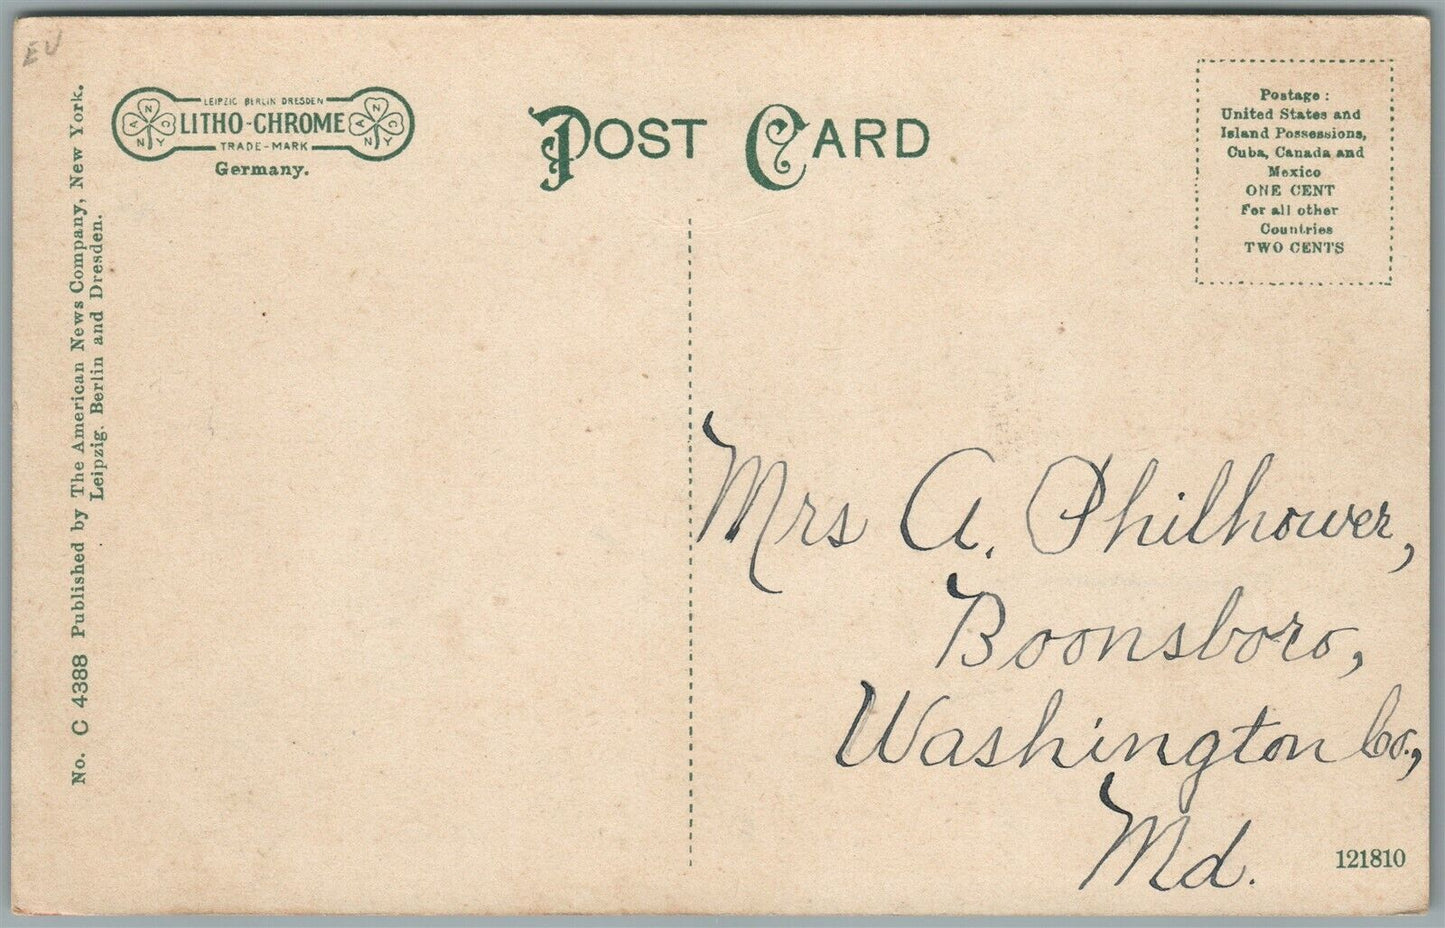 EU
LEIPZIG BERLIN DRESDEN
LITHO-CHROME
TRADE-MARK
Germany.
A N N Y
A N C Y
POST CARD
Postage :
United States and
Island Possessions,
Cuba, Canada and
Mexico
ONE CENT
For all other
Countries
TWO CENTS
No. C 4388 Published by The American News Company, New York.
Leipzig. Berlin and Dresden.
Mrs A. Philhower,
Boonsboro,
Washington Co.,
Md.
121810